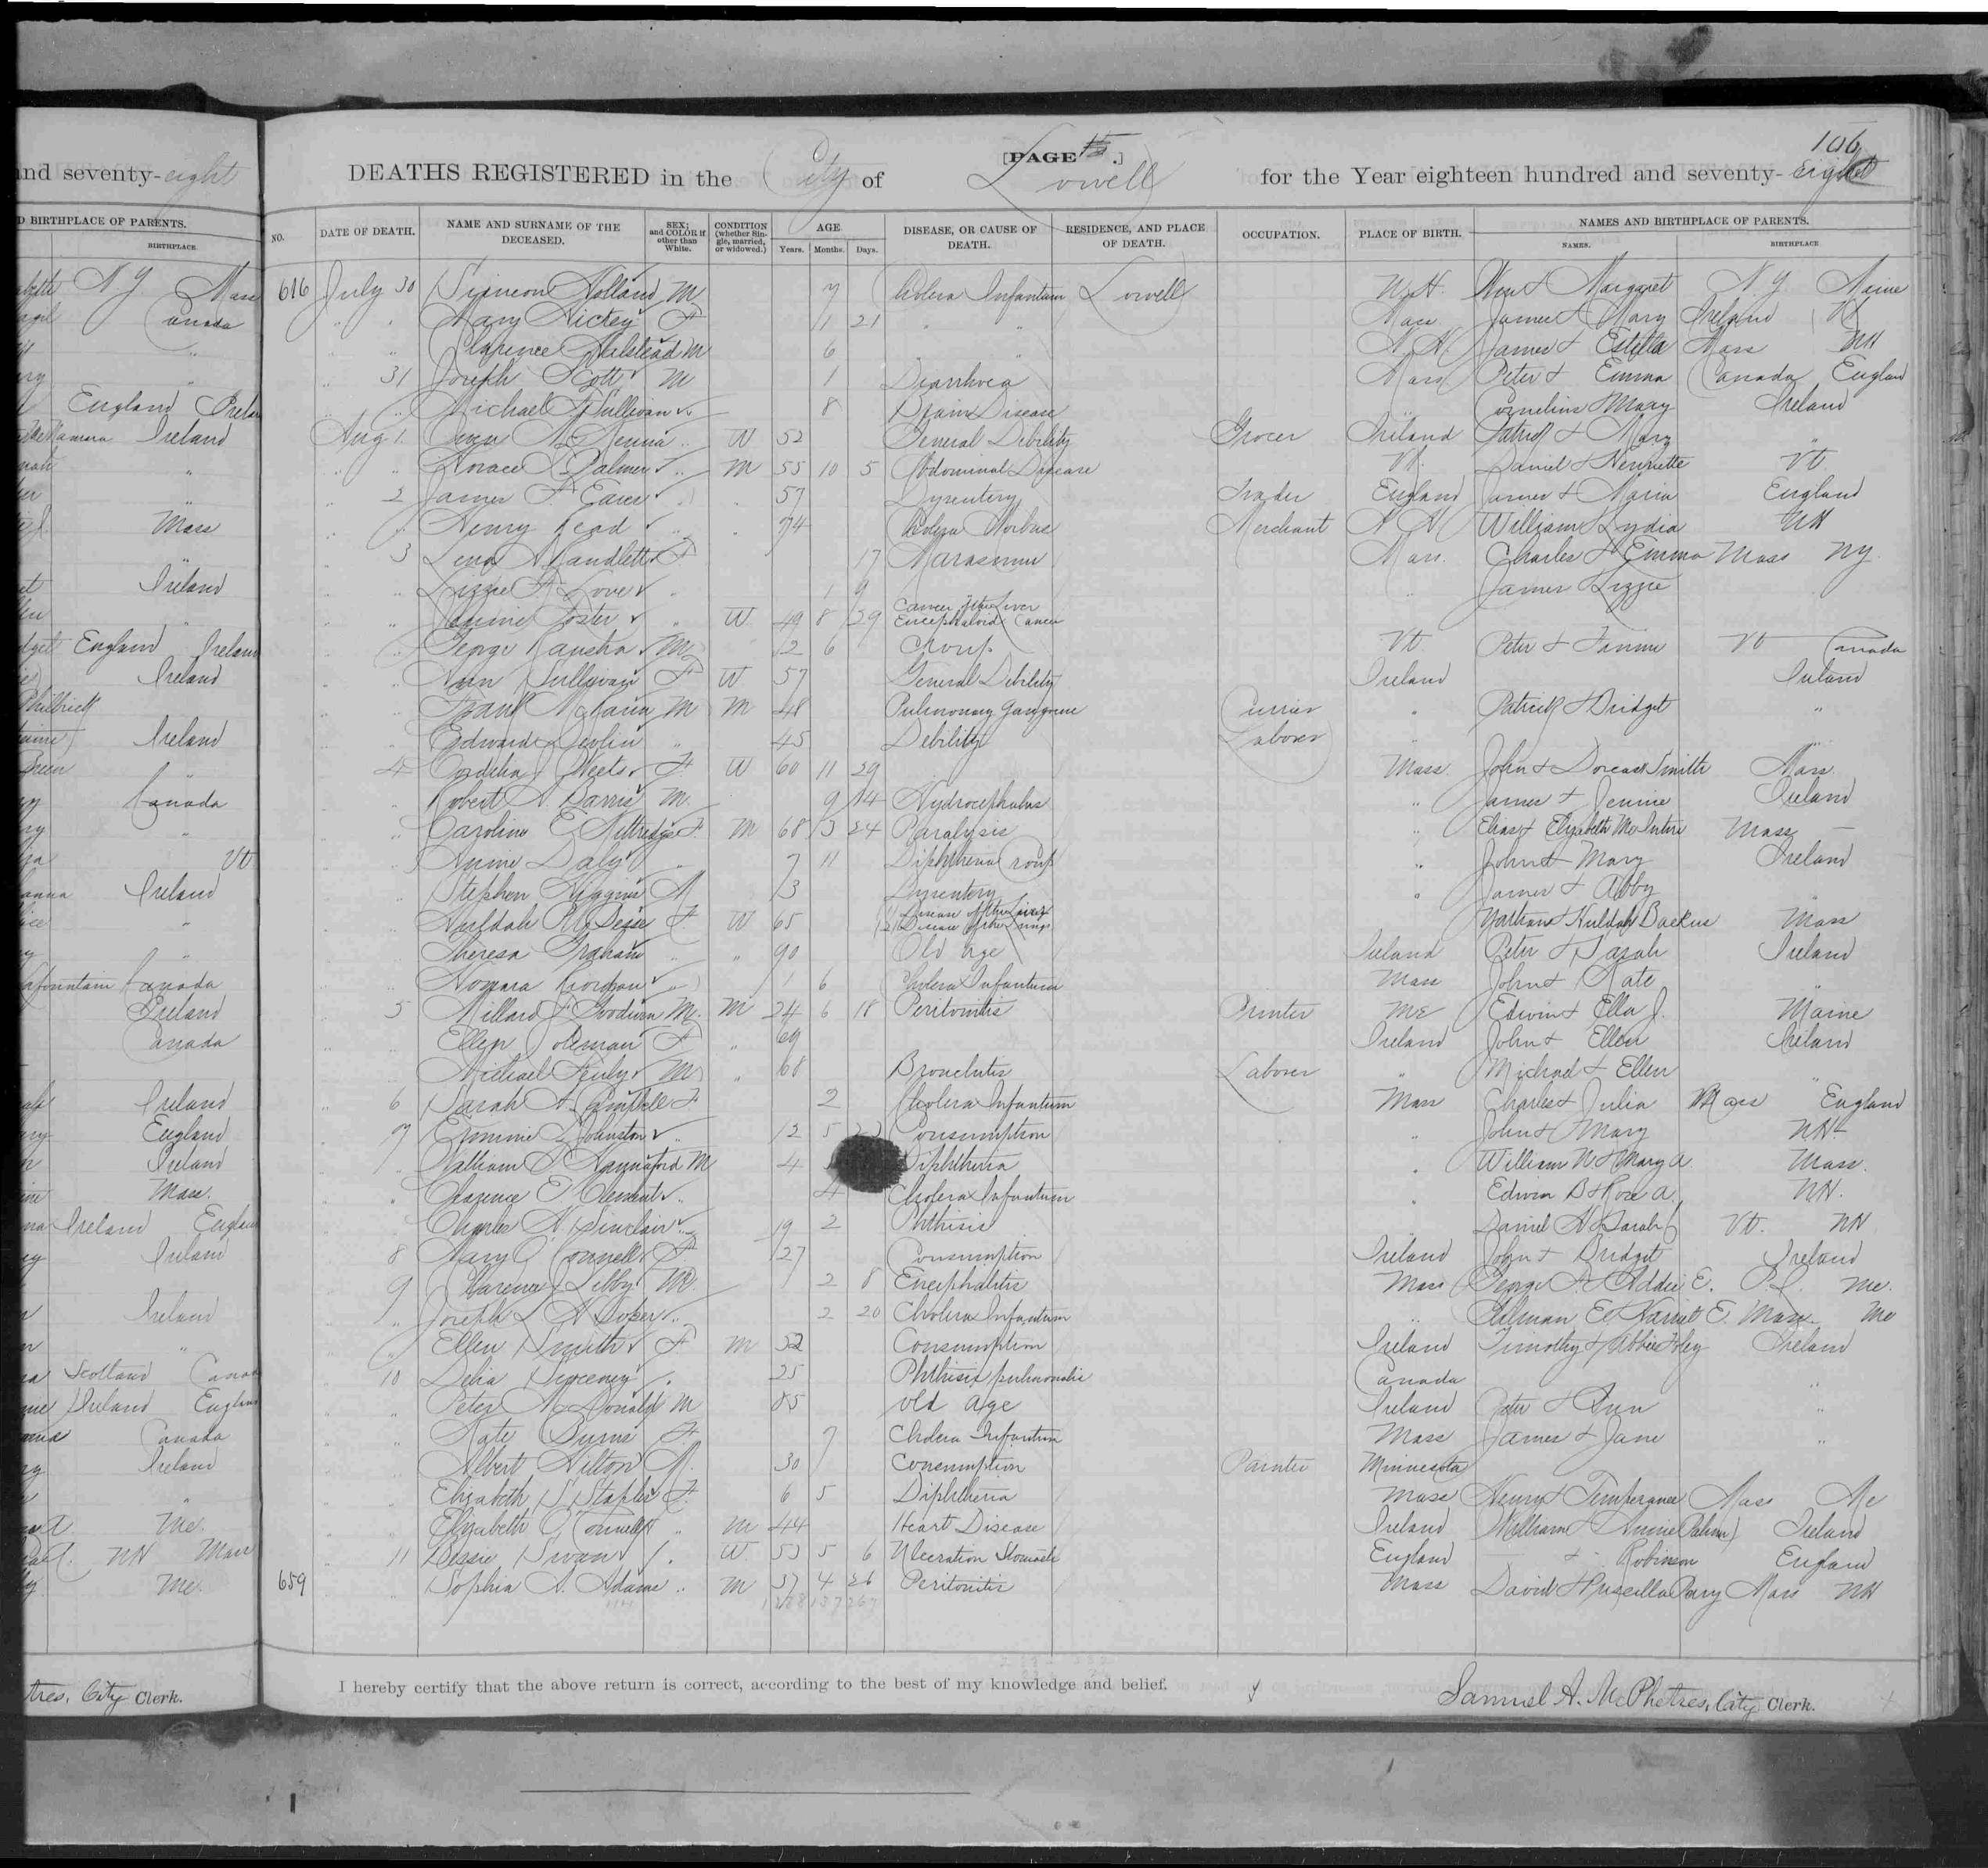 and seventy-eight
D BIRTHPLACE OF PARENTS.
BIRTHPLACE.
N.Y. Mass
Canada
"
England Ireland
McNamara Ireland
"
"
Mass
Ireland
"
England Ireland
Ireland
Philbrick
Ireland
"
Canada
"
Vt
Ireland
"
"
Canada
Ireland
Canada
Ireland
England
Ireland
Mass.
Ireland England
Ireland
Ireland
"
Scotland Canada
Ireland England
Canada
Ireland
"
Me.
NH Mass
Me.
tres, City Clerk.
106
[PAGE .]
DEATHS REGISTERED in the City of Lowell for the Year eighteen hundred and seventy-eight
NO. DATE OF DEATH. NAME AND SURNAME OF THE DECEASED. SEX; and COLOR if other than White. CONDITION (whether Single, married, or widowed.) AGE Years. Months. Days. DISEASE, OR CAUSE OF DEATH. RESIDENCE, AND PLACE OF DEATH. OCCUPATION. PLACE OF BIRTH. NAMES AND BIRTHPLACE OF PARENTS. NAMES. BIRTHPLACE
616 July 30 Simeon Holland M 7 Cholera Infantum Lowell N.H. Wm & Margaret N.Y. Maine
" " Mary Hickey F 1 21 " " Mass James & Mary Ireland
" " Clarence Halstead M 6 " N.H. James & Estella Mass NH
" 31 Joseph Scott M 1 Diarrhoea Mass Peter & Emma Canada England
" " Michael Sullivan " 8 Brain Disease " Cornelius & Mary Ireland
Aug 1 Owen McKenna " W 52 General Debility Grocer Ireland Patrick & Mary "
" " Horace S. Palmer " M 55 10 5 Abdominal Disease Vt. Daniel & Henriette Vt
" 2 James F. " " 57 Dysentery Trader England James & Maria England
" " Henry Read " " 74 Cholera Morbus Merchant N.H. William & Lydia NH
" 3 Lena Randlett F 17 Marasmus Mass. Charles & Emma Mass NY.
" " Lizzie A. Love " 1 9 " James & Lizzie
" " Foster " W 49 8 29 Cancer of the Liver Encephaloid Cancer
" " George M 2 6 Croup Vt. Peter & Fannie Vt Canada
" " Ann Sullivan F W 57 General Debility Ireland Ireland
" " Frank M M 48 Pulmonary Gangrene Currier " Patrick & Bridget "
" " Edward Devlin " 45 Debility Laborer " "
" 4 Cordelia J. F. W 60 11 29 Mass. John & Dorcas Smith Mass.
" " Robert A. Barris M. 9 14 Hydrocephalus " James & Jennie Ireland
" " Caroline E. Kittredge F. M 68 3 24 Paralysis " Elias & Elizabeth McIntire Mass —
" " Annie Daly " 7 11 Diphtheria Croup " John & Mary Ireland
" " Stephen Higgins M 3 Dysentery " James & Abby "
" " Huldah F. W 65 Disease of the Liver (2) Disease of the Lungs Nathan & Huldah Backus Mass
" " Theresa Graham " " 90 Old age Ireland Peter & Sarah Ireland
" " Honora " 1 6 Cholera Infantum Mass John & Kate "
" 5 Millard F. Goodwin M. M 24 6 18 Peritonitis Printer Me Edwin & Ella J. Maine
" " Ellen Coleman F " 69 Ireland John & Ellen Ireland
" " Michael M " 68 Bronchitis Laborer " Michael & Ellen "
" 6 Sarah A. Campbell F. 2 Cholera Infantum Mass Charles & Julia Mass England
" 7 Emmie L. Johnston " 12 5 Consumption " John & Mary NH
" " William S. Haynsford M 4 Diphtheria " William N & Mary A Mass.
" " Clarence E. Clement " 4 Cholera Infantum " Edwin B & Rose A. NH.
" " Charles N. Sinclair " 19 2 Phthisis Daniel N & Sarah Vt. NH
" 8 Mary Connell F 27 Consumption Ireland John & Bridget Ireland
" 9 Clarence J. Libby M. 2 8 Encephalitis Mass George F. & Addie E. Me.
" " Joseph L. " 2 20 Cholera Infantum " Harriet E. Mass. Me
" " Ellen Smith F M 52 Consumption Ireland Timothy & Abbie Foley Ireland
" 10 Delia Sweeney " 25 Phthisis pulmonalis Canada "
" " Peter McDonald M 85 old age Ireland Peter & Ann "
" " Kate Burns F. 7 Cholera Infantum Mass James & Jane "
" " Albert Hilton M. 30 Consumption Painter Minnesota
" " Elizabeth S. Staples F. 6 5 Diphtheria Mass Henry & Temperance Mass Me
" " Elizabeth O'Connell " M 44 Heart Disease Ireland William & Annie Ireland
" 11 Bessie Swan " W. 53 5 6 Ulceration Stomach England — & — Robinson England
659 " " Sophia A. Adams " M 37 4 26 Peritonitis Mass David & Priscilla Mass NH
I hereby certify that the above return is correct, according to the best of my knowledge and belief.
Samuel A. McPhetres, City Clerk.